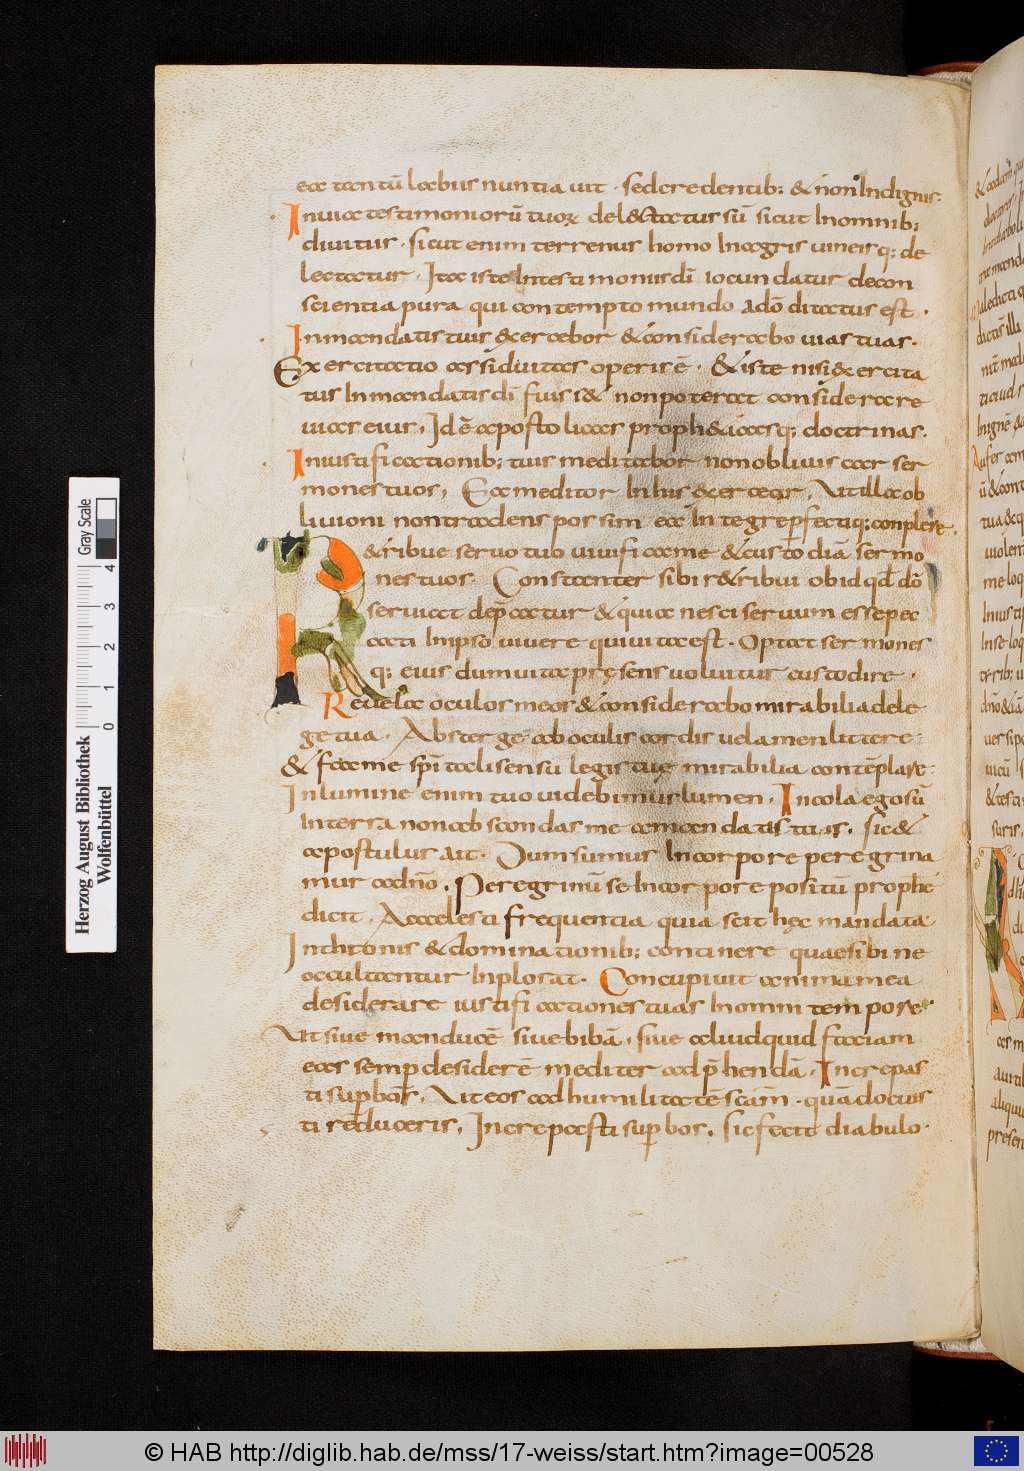 ea tantū labiis nuntiauit · sed credentib; & non Indignis ·
In uia testimoniorū tuoꝝ del&ctatus sū sicut Inomnib;
diuitiis · sicut enim terrenus homo Inagris uineisq; de
lectatur · Ita iste Intestimoniis dī iocundatur decon
scientia pura qui contempto mundo adō ditatus est ·
Inmandatis tuis &ercebor & considerabo uias tuas ·
Exercitatio assiduitas operis ē · & iste nisi &ercita
tus Inmandatis dī fuiss& non poterat considerare
uias eius, Idē apostolicas proph&icasq; doctrinas ·
Iniustificationib; tuis meditabor non obliuiscar ser
mones tuos, Ea meditor In his &ercear, Ut illa ob
liuioni non tradens possim ea Integre perfectiq; conplere ·
R&ribue seruo tuo uiuifica me & custodiā sermo
nes tuos · Constanter sibi r&ribui ob id qd dō
seruiat dep̄catur & quia nesci seruum esse pec
cati Inipso uiuere qui uita est · Optat sermones
q; eius dum uita presens uoluitur custodire ·
Reuela oculos meos & considerabo mirabilia dele
ge tua · Absterge ab oculis cordis uelamen littere
& fac me sp̄itali sensu legis tuę mirabilia contēplare
Inlumine enim tuo uidebimus lumen · Incola ego sū
Interra non abscondas me amandatis tuis · sic &
apostulus ait · Dum sumus Incorpore peregrina
mur adn̄o, Peregrinū se Incorpore positū prophē
dicit · Acaelesti frequentia quia scit hęc mandata
Inthronis & dominationib; continere quae sibi ne
occultentur Inplorat · Concupiuit anima mea
desiderare iustificationes tuas Inomni tempore ·
Ut siue manducē siue bibā · siue aliud quid faciam
eas semp desiderē mediter ad p̄hendā · Increpas
ti superbos, Ut eos ad humilitatē scām · quā docuis
ti reduceris, Increpasti superbos, sic fecit diabulo ·
Herzog August Bibliothek
Wolfenbüttel
Gray Scale
0 1 2 3 4
© HAB http://diglib.hab.de/mss/17-weiss/start.htm?image=00528